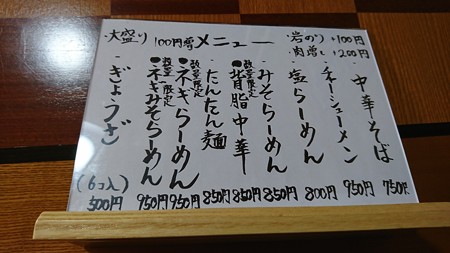 メニュー
・大盛り 100円増
・岩のり +100円
・肉増し +200円
・中華そば 750円
・チャーシューメン 950円
・塩らーめん 800円
・みそらーめん 850円
●数量限定 背脂中華 850円
・たんたん麺 850円
●数量限定 ネギらーめん 950円
●数量限定 ネギみそらーめん 950円
・ぎょうざ (6コ入) 500円